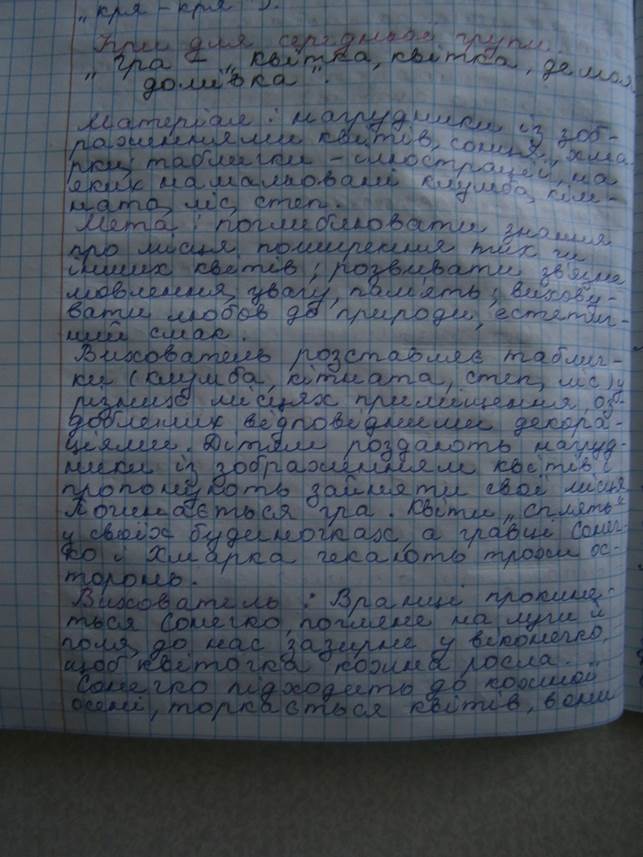 „кря - кря").
Ігри для середньої групи.
„Гра – „Квітка, квітка, де моя
домівка".
Матеріал: нагрудники із зоб-
раженнями квітів, сонця, хма-
рки; таблички - ілюстрації, на
яких намальовані клумба, кім-
ната, ліс, степ.
Мета: поглиблювати знання
про місця поширення тих чи
інших квітів; розвивати зв'язне
мовлення, увагу, пам'ять; вихову-
вати любов до природи, естетич-
ний смак.
Вихователь розставляє таблич-
ки (клумба, кімната, степ, ліс) у
різних місцях приміщення, оз-
доблених відповідними декора-
ціями. Дітям роздають нагруд-
ники із зображенням квітів і
пропонують зайняти свої місця.
Починається гра. Квіти „сплять"
у своїх будиночках, а гравці Сонеч-
ко і Хмарка чекають трохи ос-
торонь.
Вихователь: Вранці прокине-
ться Сонечко, погляне на луги й
поля, до нас загляне у віконечко,
щоб квіточка кожна росла.
Сонечко підходить до кожної
оселі, торкається квітів, вони